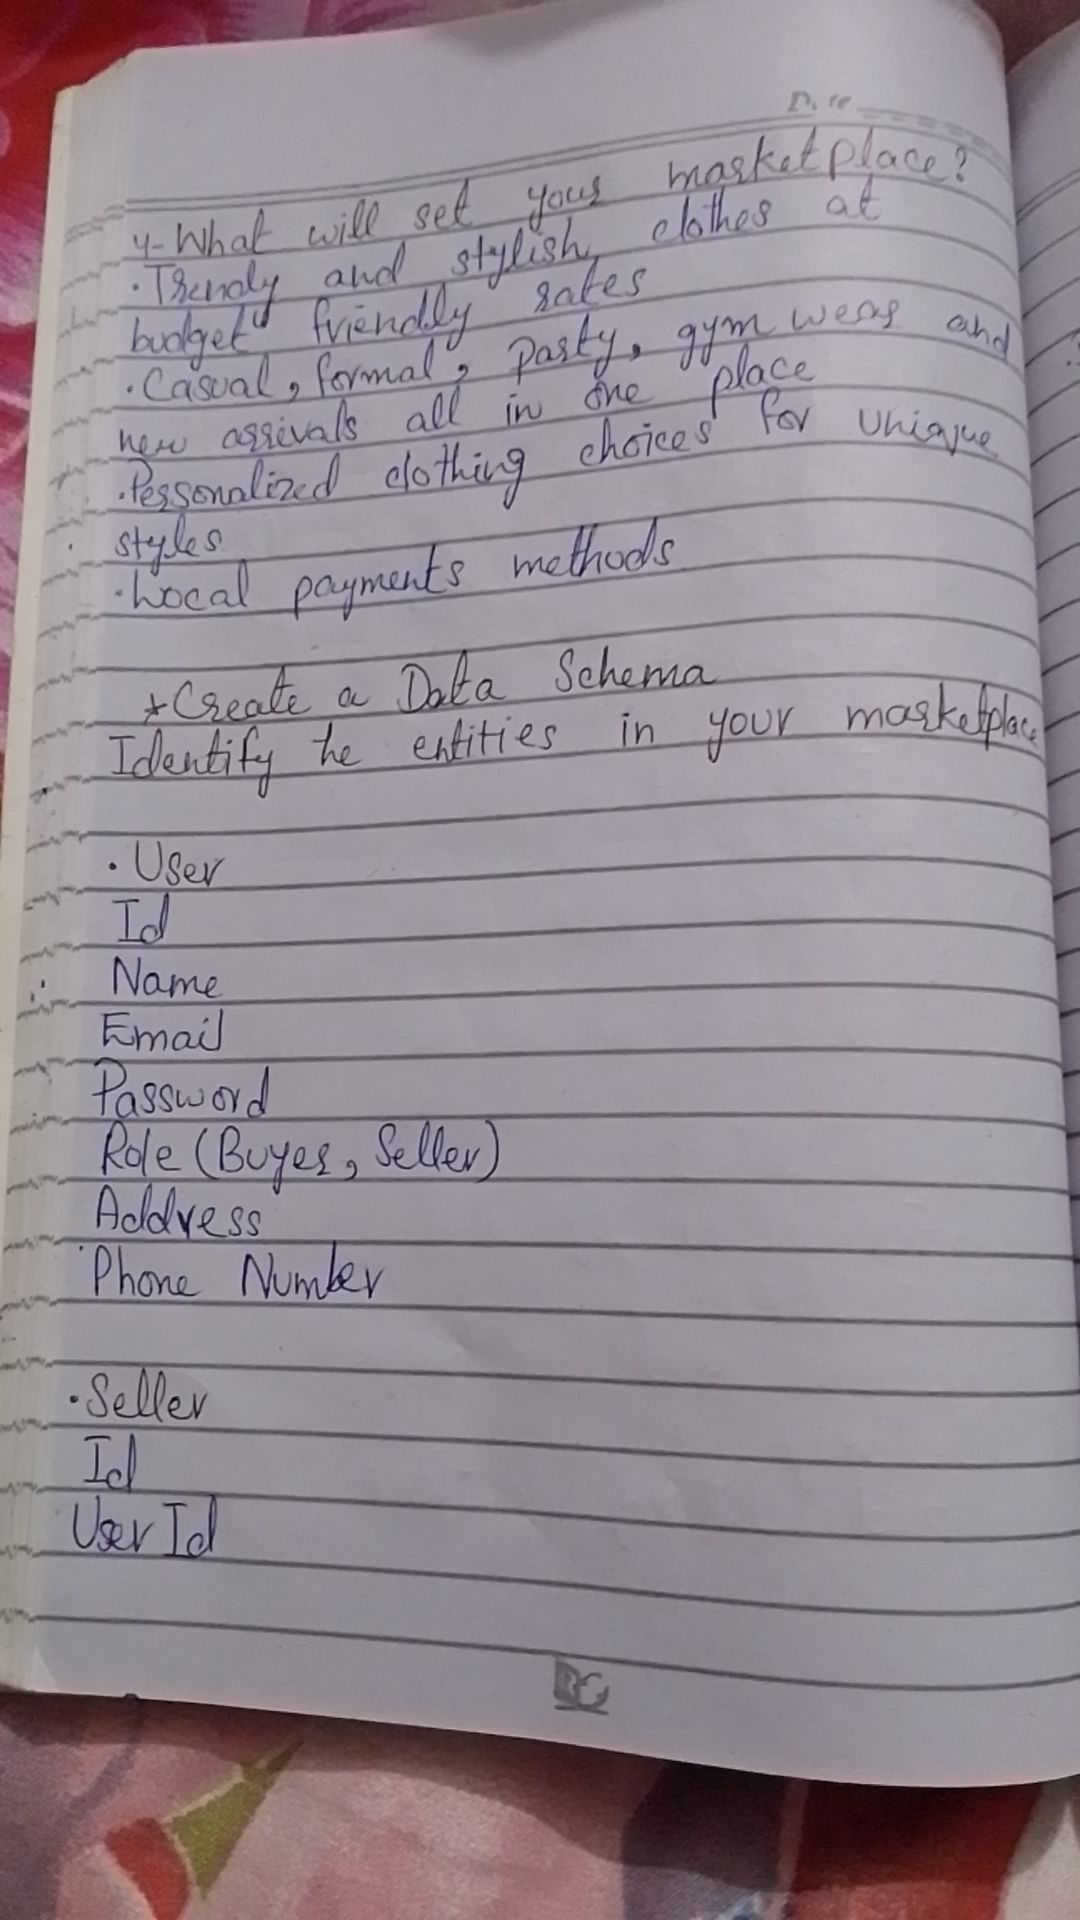 4-What will set your marketplace?
·Trendy and stylish clothes at
budget friendly rates
·Casual, formal, party, gym wear and
new arrivals all in one place
·Personalized clothing choices for unique
styles
·Local payments methods
*Create a Data Schema
Identify he entities in your marketplace
·User
Id
Name
Email
Password
Role (Buyer, Seller)
Address
Phone Number
·Seller
Id
User Id